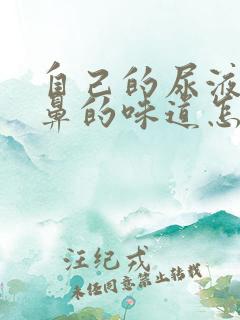 自己的尿液
鼻的味道怎
汪纪戎
未经同意禁止转载